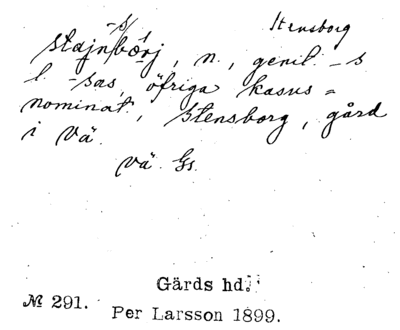 Stensborg
stajnbœrj, n., genit. -s
l. -sas, öfriga kasus =
nominat., Stensborg, gård
i Vä.
Vä Gs.
Gärds hd.
№ 291.
Per Larsson 1899.